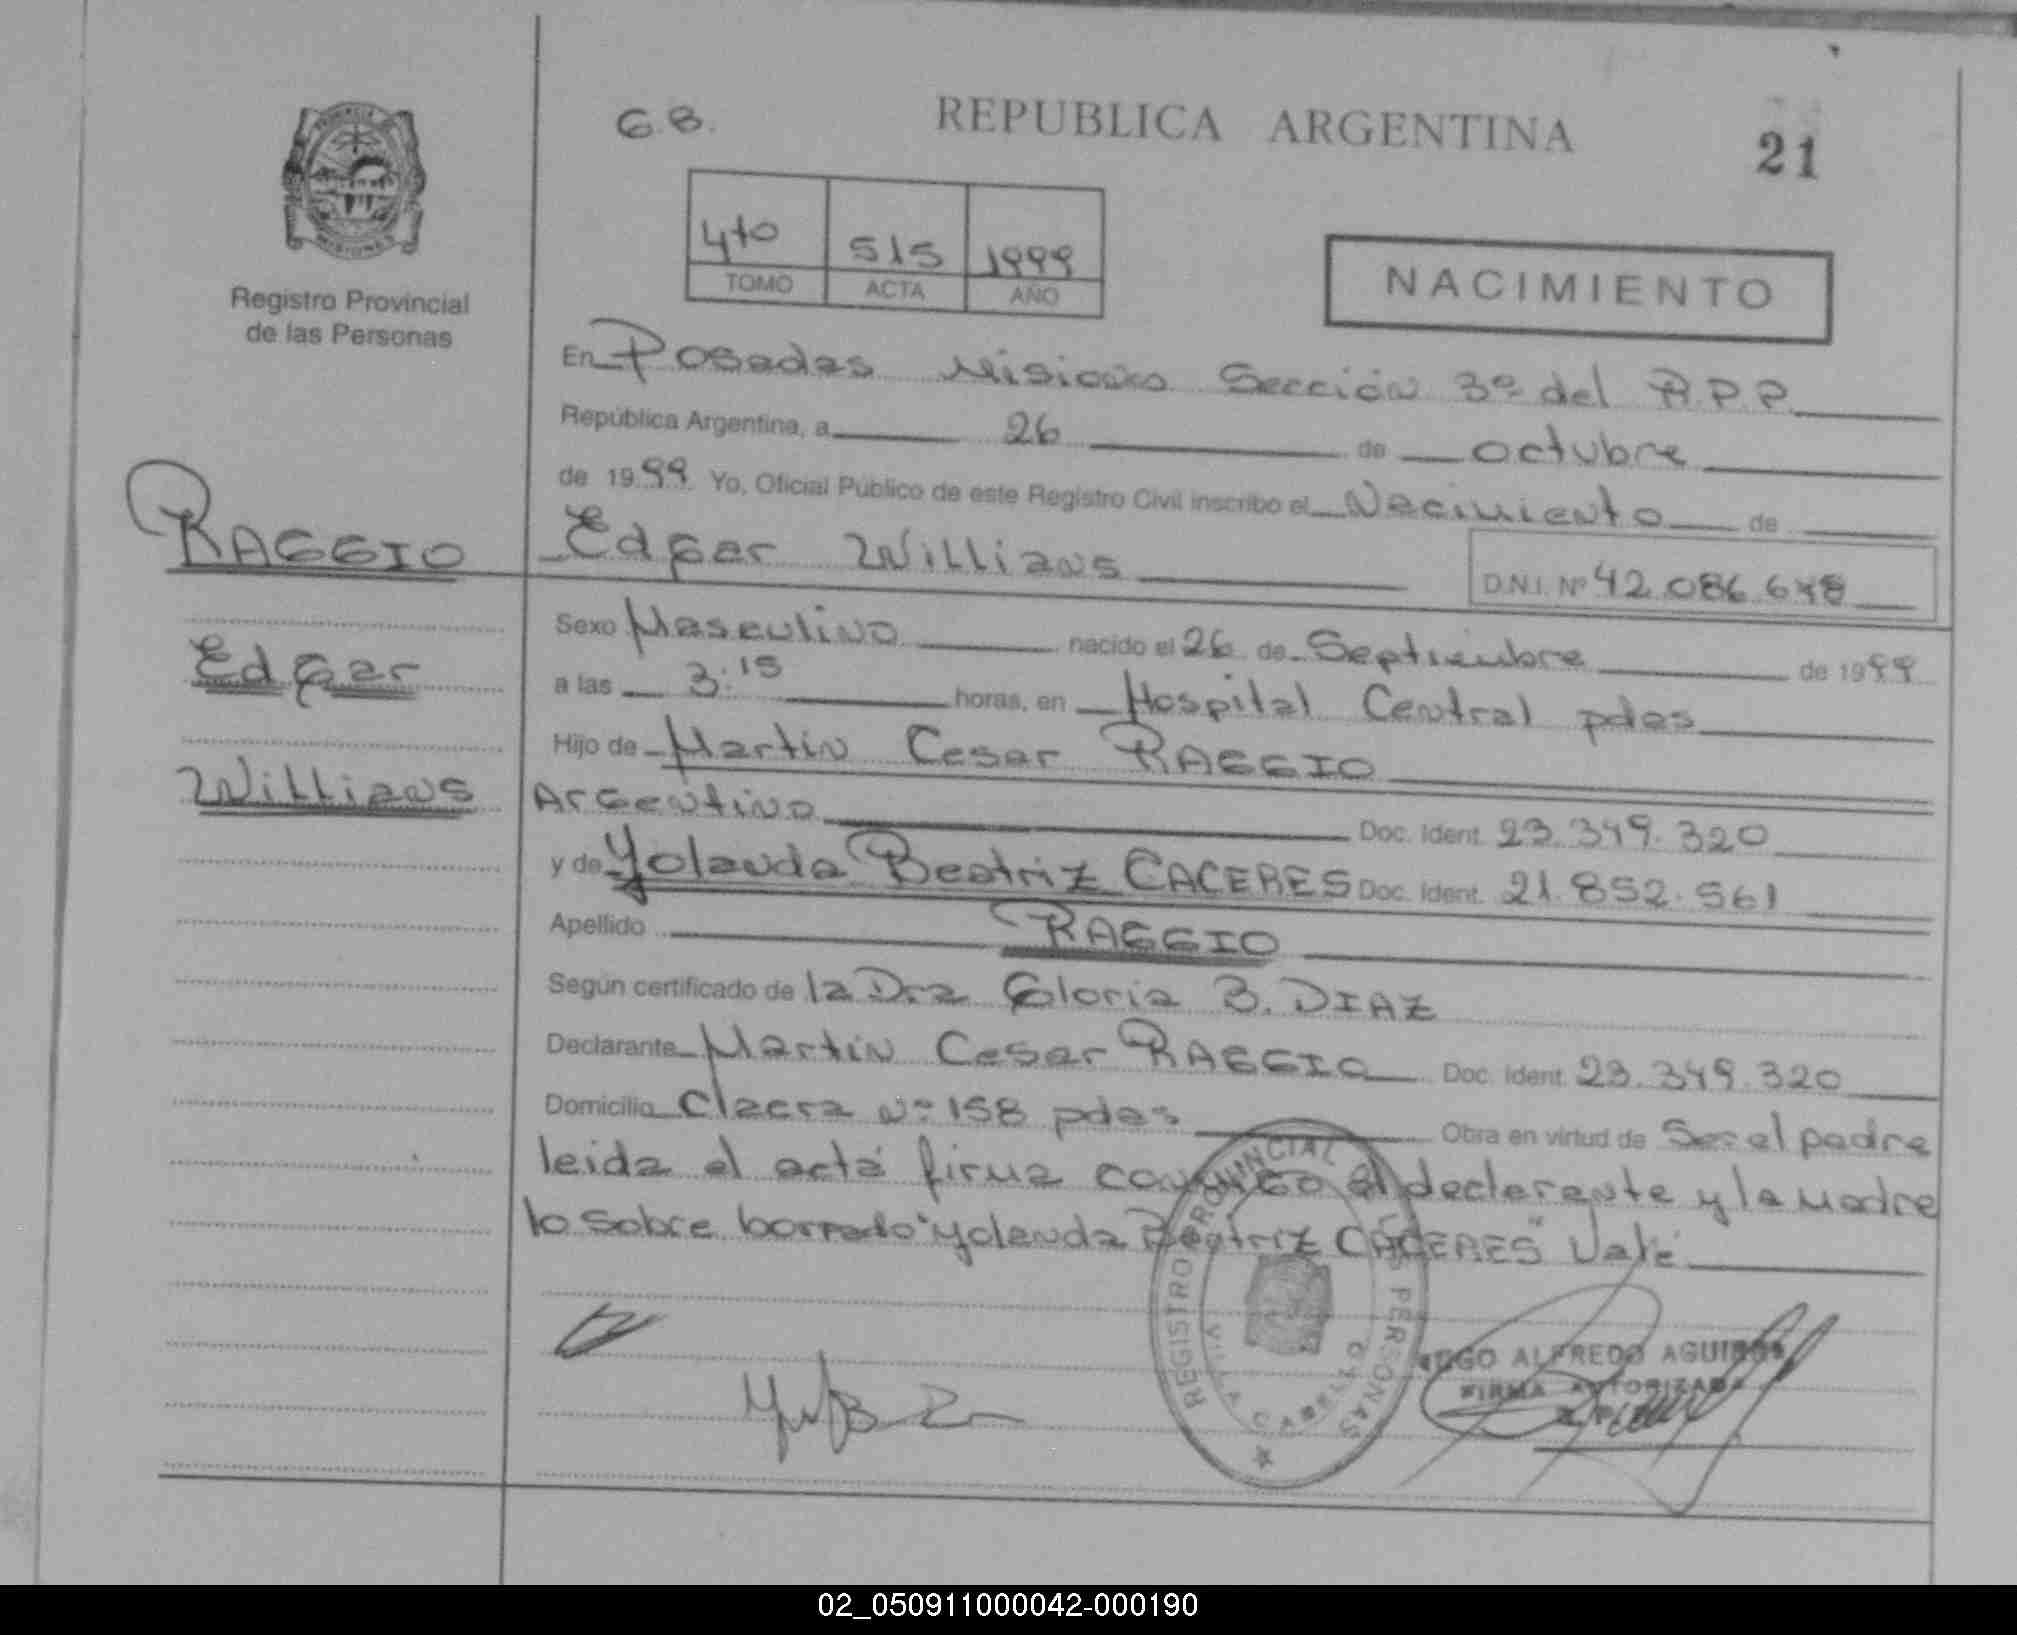 G.B.
REPUBLICA ARGENTINA
21
4to 515 1999
TOMO ACTA AÑO
NACIMIENTO
Registro Provincial
de las Personas
En Posadas Misiones Sección 3º del R.P.P.
República Argentina, a 26 de octubre
de 1999 Yo, Oficial Público de este Registro Civil inscribo el Nacimiento de
RAGGIO
Edgar Willians
D.N.I. Nº 42.086.648
Sexo Masculino nacido el 26 de Septiembre de 1999
Edgar
a las 3:15 horas, en Hospital Central pdas
Hijo de Martin Cesar RAGGIO
Willians
Argentino Doc. Ident. 23.349.320
y de Yolanda Beatriz CACERES Doc. Ident. 21.852.561
Apellido RAGGIO
Según certificado de la Dra Gloria B. DIAZ
Declarante Martin Cesar RAGGIO Doc. Ident. 23.349.320
Domicilio Clacra nº 158 pdas Obra en virtud de Ser el padre
leida el acta firma conmigo el declarante y la madre
lo sobre borrado "Yolanda Beatriz CACERES" Vale
REGISTRO PROVINCIAL PERSONAS
VILLA CABELLO
ALFREDO AGUIRRE
FIRMA AUTORIZADA
02_050911000042-000190